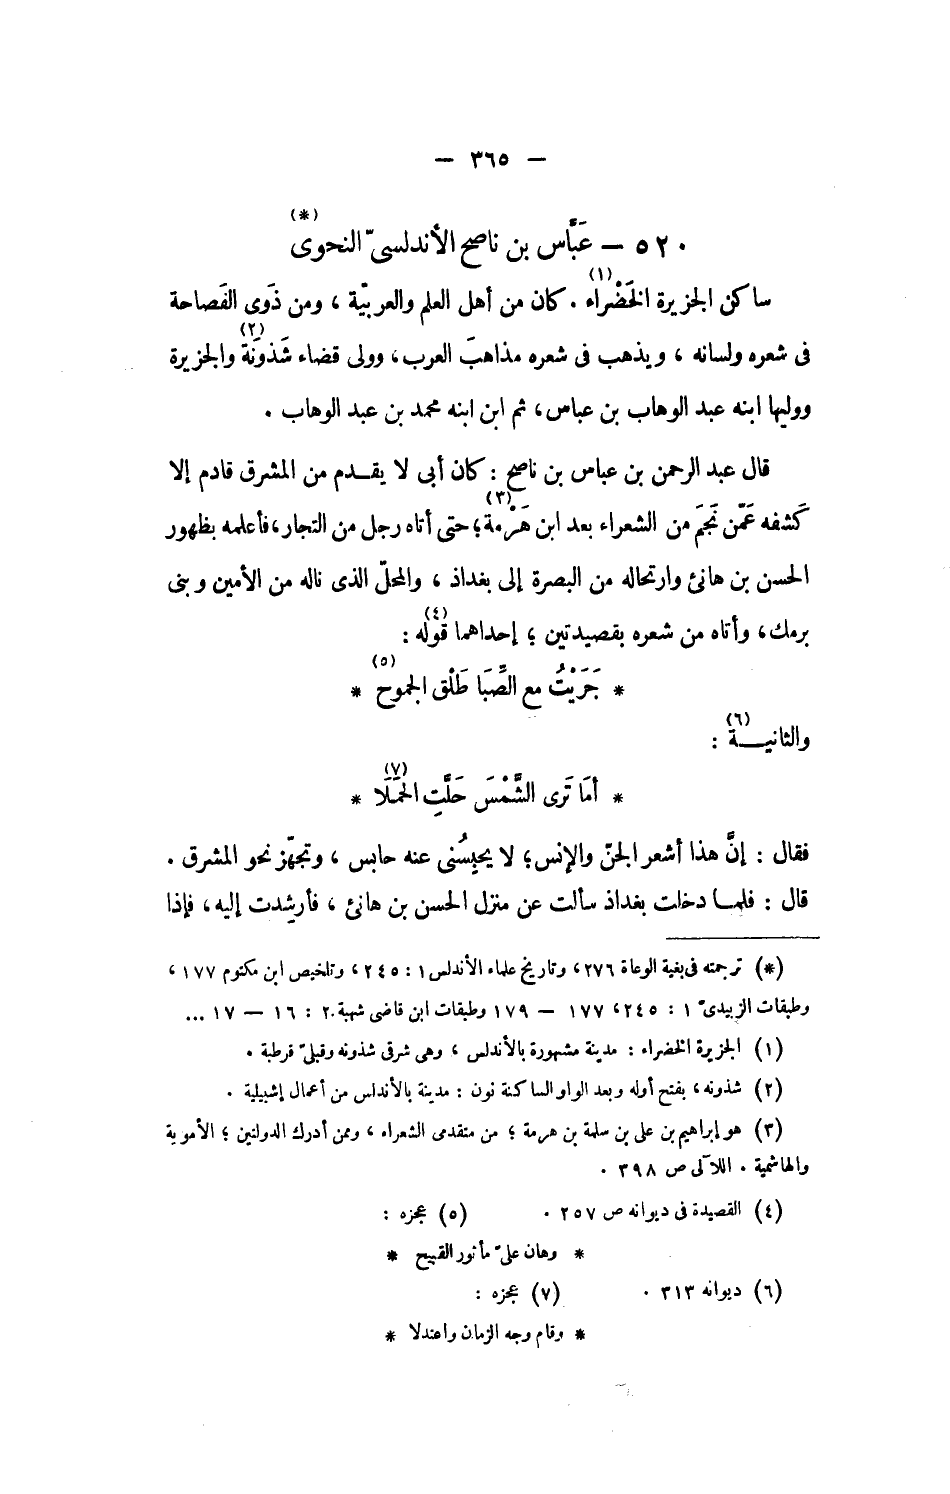 — ٣٦٥ —
٥٢٠ — عَبَّاس بن ناصح الأندلسىّ النحوى (*)
ساكن الجزيرة الخَضْراء (١) . كان من أهل العلم والعربيّة ، ومن ذَوى الفَصاحة
فى شعره ولسانه ، ويذهب فى شعره مذاهبَ العرب، وولى قضاء شَذونَة (٢) والجزيرة
ووليها ابنه عبد الوهاب بن عباس، ثم ابن ابنه محمد بن عبد الوهاب .
قال عبد الرحمن بن عباس بن ناصح : كان أبى لا يقــدم من المشرق قادم إلا
كَشفه عَمّن نَجَمَ من الشعراء بعد ابن هَرْمة (٣)؛ حتى أتاه رجل من التجار، فأعلمه بظهور
الحسن بن هانئ وارتحاله من البصرة إلى بغداذ ، والمحلّ الذى ناله من الأمين وبنى
برمك، وأتاه من شعره بقصيدتين ؛ إحداهما قوله (٤) :
* جَرَيْتُ مع الصِّبَا طَلْق الجموح (٥) *
والثانيــة (٦) :
* أمَا تَرى الشَّمْسَ حَلَّتِ الحَمَلَا (٧) *
فقال : إنَّ هذا أشعر الجنّ والإنس؛ لا يحبِسُنى عنه حابس ، وتجهّز نحو المشرق .
قال : فلمــا دخلت بغداذ سألت عن منزل الحسن بن هانئ ، فأرشِدت إليه، فإذا
(*) ترجمته فى بغية الوعاة ٢٧٦ ، وتاريخ علماء الأندلس ١ : ٢٤٥ ، وتلخيص ابن مكتوم ١٧٧ ،
وطبقات الزبيدىّ ١ : ٢٤٥ ، ١٧٧ — ١٧٩ وطبقات ابن قاضى شهبة ٢ : ١٦ — ١٧ ...
(١) الجزيرة الخضراء : مدينة مشهورة بالأندلس ، وهى شرقى شذونه وقبلىّ قرطبة .
(٢) شذونه ، بفتح أوله وبعد الواو الساكنة نون : مدينة بالأندلس من أعمال إشبيلية .
(٣) هو إبراهيم بن على بن سلمة بن هرمة ؛ من متقدمى الشعراء ، وممن أدرك الدولتين ؛ الأموية
والهاشمية . اللآلى ص ٣٩٨ .
(٤) القصيدة فى ديوانه ص ٢٥٧ . (٥) عجزه :
* وهان علىّ مأثور القبيح *
(٦) ديوانه ٣١٣ . (٧) عجزه :
* وقام وجه الزمان واعتدلا *